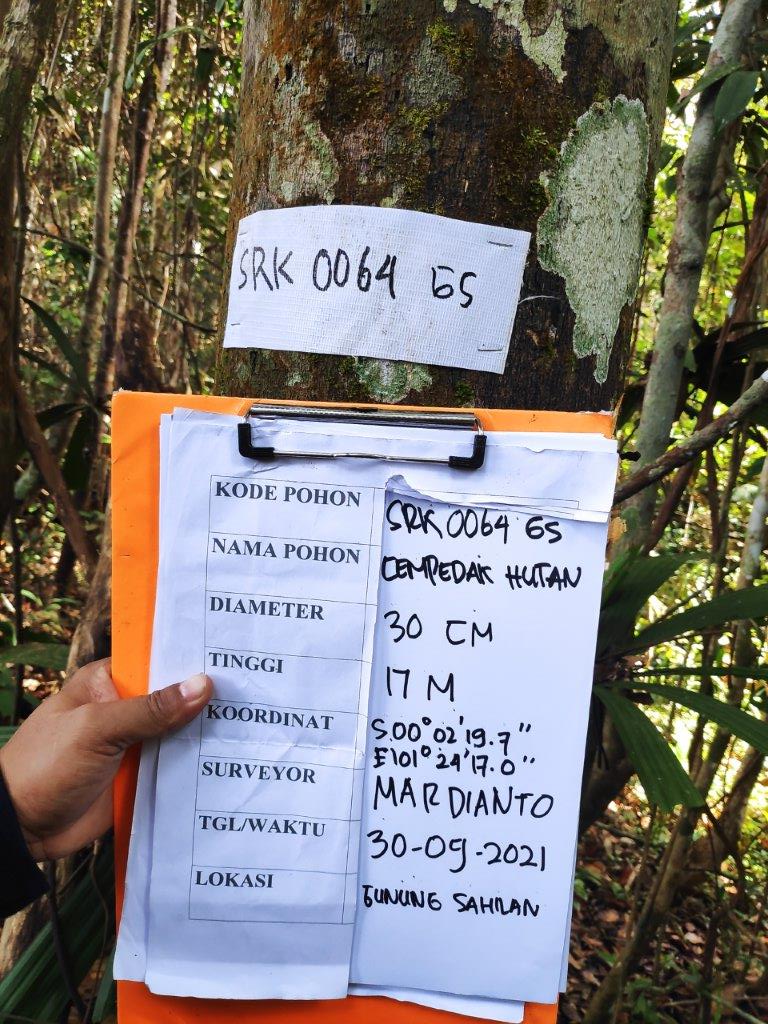 SRK 0064 GS
KODE POHON SRK 0064 GS
NAMA POHON CEMPEDAK HUTAN
DIAMETER 30 CM
TINGGI 17 M
KOORDINAT S.00° 02' 19.7"
E101° 24' 17.0"
SURVEYOR MARDIANTO
TGL/WAKTU 30-09-2021
LOKASI GUNUNG SAHILAN